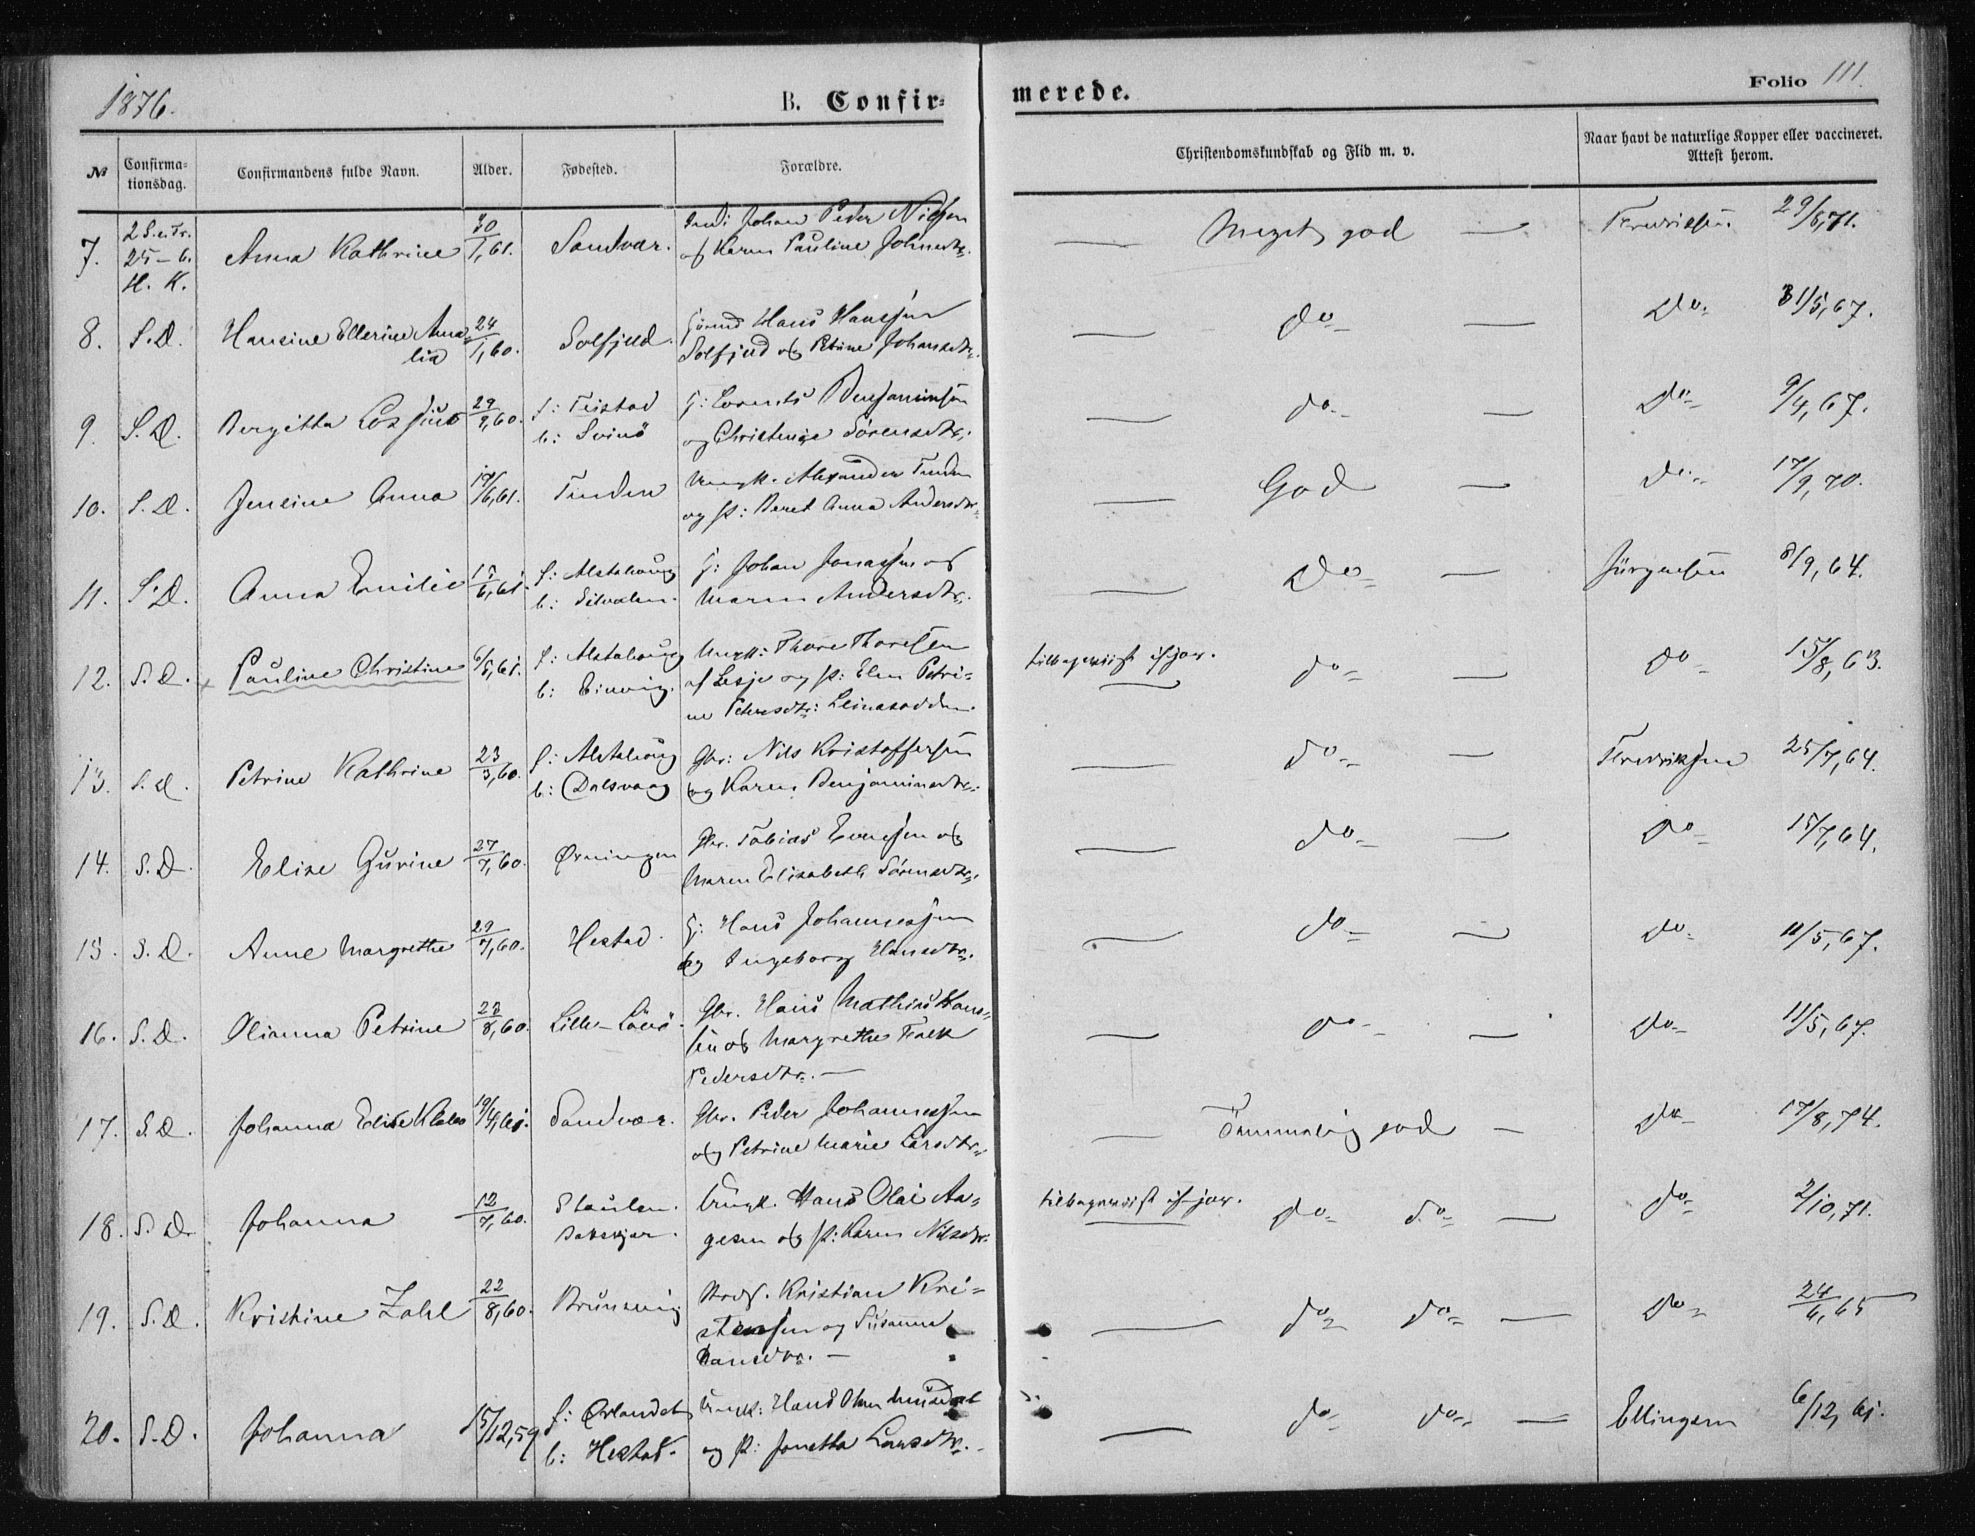 1876.
B. Confir-
merede.
Folio 111.
№
Confirma-
tionsdag.
Confirmandens fulde Navn.
Alder.
Fødested.
Forældre.
Christendomskundskab og Flid m. v.
Naar havt de naturlige Kopper eller vaccineret.
Attest herom.
7. 2 S. e. Tr. 25-6. H. K. Anna Kathrine 30/1,61. Sandvær. Johan Peder Nielsen
og Karen Pauline Johnsdtr. — Meget god — Fredriksen 29/6,71.
8. S.D. Hansine Ellerine Ama-
lia 24/1,60. Solfjeld. Hans Hanssen
Solfjeld og Petrine Johansdtr. — do — Do 31/5,67.
9. S.D. Bergitta 29/9,60. f: Teistad
b: Svinö G: Lorents Benjaminsen
og Sörensdtr. — do — Do 9/4,67.
10. S.D. Jensine Anna 17/6,61. Tinden Ungk. Alexander Tinden
og p: Beret Anna Andersdtr. — God — do 17/9,70.
11. S.D. Anna Emilie 15/6,61. f: Alstahoug
b: G: Johan Jonassen og
Maren Andersdtr. — Do — Jürgensen 8/9,64.
12. S.D. Pauline Christine 6/5,61. f: Alstahoug
b: Ungk: Thore Thoresen
af Lesje og p: Elen Petri-
ne Petersdtr: Leinesodden. tilbageviist ifjor. — do — do 15/8,63.
13. S.D. Petrine Kathrine 23/3,60. f: Alstahoug
b: Dalsvaag Gbr: Nils Kristoffersen
og Karen Benjaminsdtr. — do — Fredriksen 25/7,64.
14. S.D. Elise Gurine 27/7,60. Ørningen Gbr. Tobias Evensen og
Maren Elisabeth Sörensdtr. — do — Do 15/7,64.
15. S.D. Anne Margrethe 29/7,60. Hestad. G: Hans Johannessen
og Ingeborg Hansdtr. — do — do 11/5,67.
16. S.D. Olianna Petrine 23/8,60. Lille-Lövö. Gbr. Hans Mathias Hans-
sen og Margrethe Falk
Pedersdtr. — — do — do 11/5,67.
17. S.D. Johanna Elise 19/4,61. Sandvær. Gbr. Peder Johannessen
og Petrine Marie Larsdtr. — Temmelig god — Do 17/8,74.
18. S.D. Johanna 12/7,60. Staulen. Ungk. Hans Olai Aa-
gesen og p: Karen Nilsdtr. tilbageviist ifjor. — do do — do 2/10,71.
19. S.D. Kristine Zahl 22/8,60. Brunsvig Kristian Kri-
stensen og Susanna
Hansdtr. — — do do — Do 24/6,65
20. S.D. Johanna 15/12,59 f: Ørlandet
b: Hestad. Ungk: Hans Olsen
og p: Jonetta Larsdtr. — do do — Ellingsen 6/12,61.